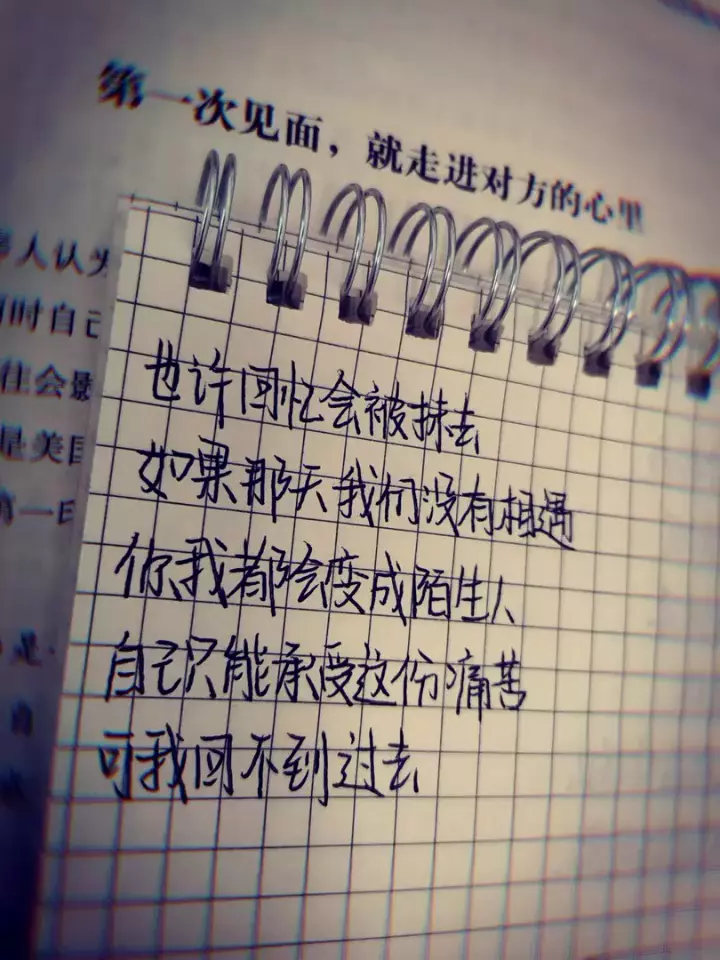 第一次见面，就走进对方的心里
人认为
时自己
往会影
是美国
第一日
是
自
也许回忆会被抹去
如果那天我们没有相遇
你我都会变成陌生人
自己只能承受这份痛苦
可我回不到过去